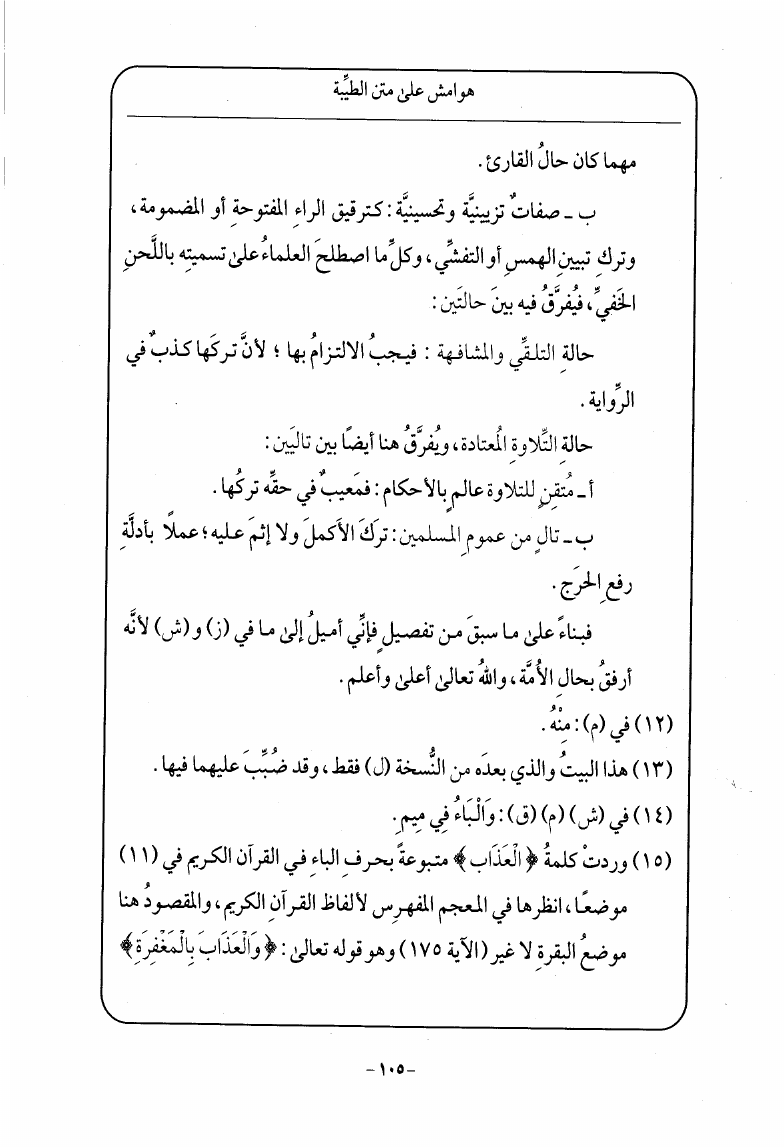 هوامش على متن الطيِّبة
مهما كان حالُ القارئ.
ب ـ صفاتٌ تزيينيَّة وتحسينيَّة: كترقيق الراءِ المفتوحةِ أو المضمومة،
وتركِ تبيين الهمسِ أو التفشِّي، وكلِّ ما اصطلحَ العلماءُ على تسميته باللَّحنِ
الخَفيِّ، فيُفرَّقُ فيه بينَ حالتَين:
حالةِ التلقِّي والمشافهة : فيجبُ الالتزامُ بها ؛ لأنَّ تركَها كذبٌ في
الرِّواية.
حالةِ التِّلاوةِ المُعتادة، ويُفرَّقُ هنا أيضًا بين تاليَين:
أ ـ مُتقِنٍ للتلاوة عالمٍ بالأحكام: فمَعيبٌ في حقِّه تركُها.
ب ـ تالٍ من عمومِ المسلمين: تركَ الأكملَ ولا إثمَ عليه؛ عملًا بأدلَّةِ
رفعِ الحَرَج.
فبناءً على ما سبقَ من تفصيلٍ فإنِّي أميلُ إلى ما في (ز) و(ش) لأنَّه
أرفقُ بحالِ الأمَّة، واللهُ تعالى أعلى وأعلم.
(١٢) في (م): مِنْهُ.
(١٣) هذا البيتُ والذي بعدَه من النُّسخة (ل) فقط، وقد ضُبِّبَ عليهما فيها.
(١٤) في (ش) (م) (ق): وَالْبَاءُ فِي مِيمٍ.
(١٥) وردتْ كلمةُ ﴿الْعَذَاب﴾ متبوعةً بحرفِ الباءِ في القرآن الكريم في (١١)
موضعًا، انظرها في المعجم المفهرِس لألفاظ القرآنِ الكريم، والمقصودُ هنا
موضعُ البقرةِ لا غير (الآية ١٧٥) وهو قوله تعالى: ﴿وَالْعَذَابَ بِالْمَغْفِرَةِ﴾
-١٠٥-